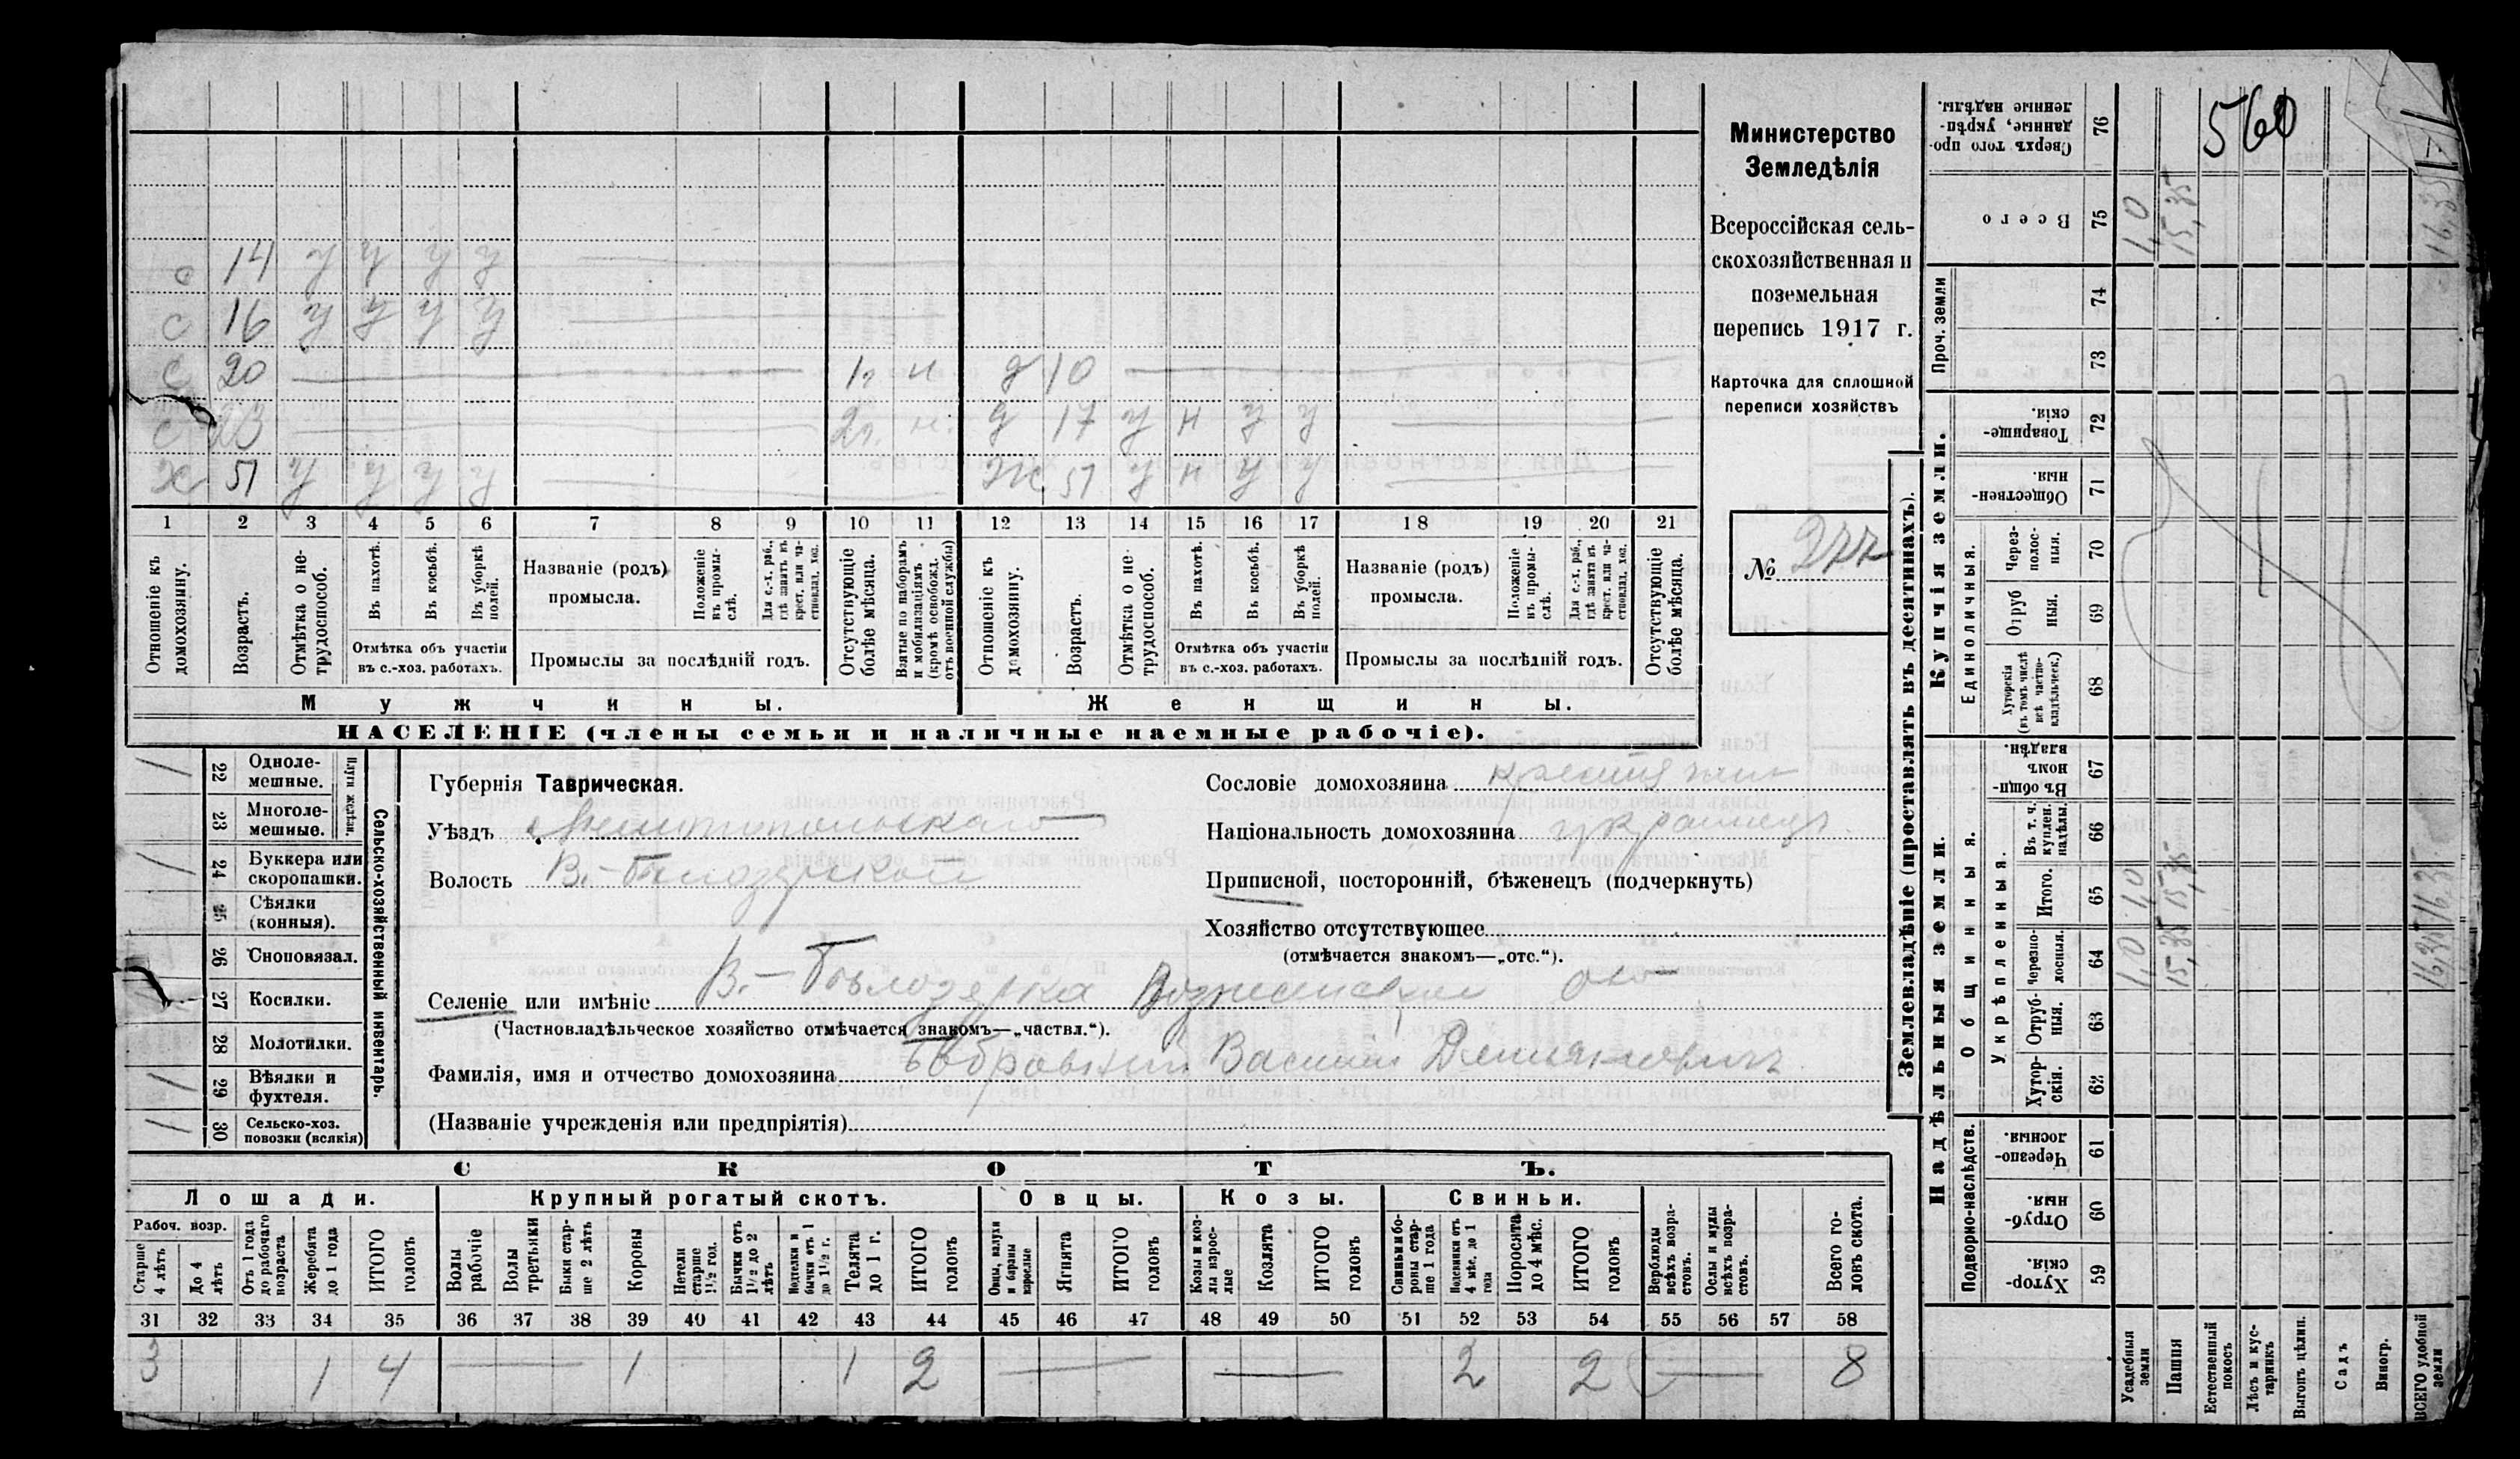 560
Министерство
Земледѣлія
Всероссійская сель-
скохозяйственная и
поземельная
перепись 1917 г.
Карточка для сплошной
переписи хозяйствъ
№ 277
с 14 у у у у
с 16 у у у у
с 20 1 г. н д 10
с 23 2 г. н. д 17 у н у у
Х 51 у у у у Ж 51 у н у у
1 2 3 4 5 6 7 8 9 10 11 12 13 14 15 16 17 18 19 20 21
Отношеніе къ домохозяину.
Возрастъ.
Отмѣтка о не-трудоспособ.
Въ пахотѣ.
Въ косьбѣ.
Въ уборкѣ полей.
Отмѣтка объ участіи
въ с.-хоз. работахъ.
Названіе (родъ)
промысла.
Положеніе въ промы-слѣ.
Для с.-х. раб., гдѣ занятъ въ крест. или ча-стновлад. хоз.
Промыслы за послѣдній годъ.
Отсутствующіе болѣе мѣсяца.
Взятые по наборамъ и мобилизаціямъ (кромѣ освобожд. отъ военной службы)
Отношеніе къ домохозяину.
Возрастъ.
Отмѣтка о не-трудоспособ.
Въ пахотѣ.
Въ косьбѣ.
Въ уборкѣ полей.
Отмѣтка объ участіи
въ с.-хоз. работахъ.
Названіе (родъ)
промысла.
Положеніе въ промы-слѣ.
Для с.-х. раб., гдѣ занята въ крест. или ча-стновлад. хоз.
Промыслы за послѣдній годъ.
Отсутствующіе болѣе мѣсяца.
Мужчины.
Женщины.
НАСЕЛЕНІЕ (члены семьи и наличные наемные рабочіе).
Сельско-хозяйственный инвентарь.
Плуги желѣзн.
22 Одноле-мешные.
23 Многоле-мешные.
24 Буккера или скоропашки.
25 Сѣялки (конныя).
26 Сноповязал.
27 Косилки.
28 Молотилки.
29 Вѣялки и фухтеля.
30 Сельско-хоз. повозки (всякія)
Губернія Таврическая.
Уѣздъ Мелитопольскаго
Волость В.-Бѣлозерской
Сословіе домохозяина крестянин
Національность домохозяина украинец
Приписной, посторонній, бѣженец (подчеркнуть)
Хозяйство отсутствующее
(отмѣчается знакомъ—„отс.“).
Селеніе или имѣніе В.-Бѣлозерка Вознесенское
(Частновладѣльческое хозяйство отмѣчается знакомъ—„частвл.“).
Фамилія, имя и отчество домохозяина Бобровный Василій Демьяновичъ
(Названіе учрежденія или предпріятія)
СКОТЪ.
Лошади. Крупный рогатый скотъ. Овцы. Козы. Свиньи.
Рабоч. возр.
Старше 4 лѣтъ
До 4 лѣтъ
Отъ 1 года до рабочаго возраста
Жеребята до 1 года
ИТОГО головъ
Волы рабочіе
Волы третьяки
Быки стар-ше 2 лѣтъ
Коровы
Нетели старше 1½ год.
Бычки отъ 1½ до 2 лѣтъ
Подтелки и бычки отъ 1 до 1½ г.
Телята до 1 г.
ИТОГО головъ
Овцы, валухи и бараны взрослые
Ягнята
ИТОГО головъ
Козы и коз-лы взрос-лые
Козлята
ИТОГО головъ
Свиньи и бо-роны стар-ше 1 года
Подсвинки отъ 4 мѣс. до 1 года
Поросята до 4 мѣс.
ИТОГО головъ
Верблюды всѣхъ возра-стовъ.
Ослы и мулы всѣхъ возра-стовъ.
Всего го-ловъ скота.
31 32 33 34 35 36 37 38 39 40 41 42 43 44 45 46 47 48 49 50 51 52 53 54 55 56 57 58
3 1 4 1 1 2 2 2 8
Землевладѣніе (проставлять въ десятинахъ).
Купчія земли.
Надѣльныя земли.
Сверхъ того про-данные, укрѣп-ленные надѣлы. 76
Всего 75
Проч. земли
74
73
Товарище-скія. 72
Обществен-ныя. 71
Единоличныя.
Черезполос-ныя. 70
Отруб ныя. 69
Хуторскія (въ томъ числѣ всѣ частно-владѣльческ.) 68
Общинныя.
Въ общин-номъ владѣн. 67
Укрѣпленныя.
Въ т. ч. куплен. надѣлы. 66
Итого. 65
Черезпо-лосныя. 64
Отруб-ныя. 63
Хутор-скія. 62
Подворно-наслѣдств.
Черезпо-лосныя. 61
Отруб-ныя. 60
Хутор-скія. 59
Усадебныя земли
Пашня
Естественный покосъ
Лѣсъ и кус-тарникъ
Выгонъ цѣлин.
Садъ
Виногр.
ВСЕГО удобной земли
1,0 1,0 1,0
15,35 15,35 15,35
16,35 16,35 16,35